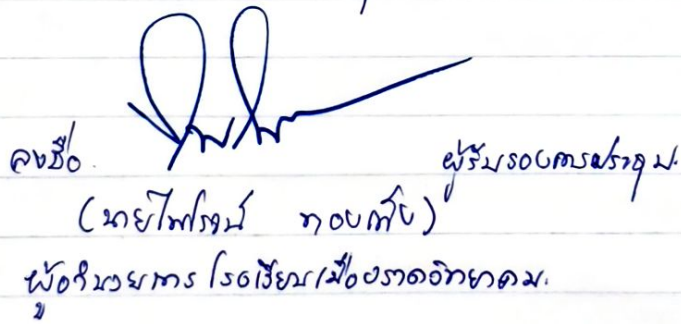 ลงชื่อ. ผู้รับรองการประชุม.
(นายไพโรจน์ ทองเพ็ง)
ผู้อำนวยการโรงเรียนเมืองราดวิทยาคม.